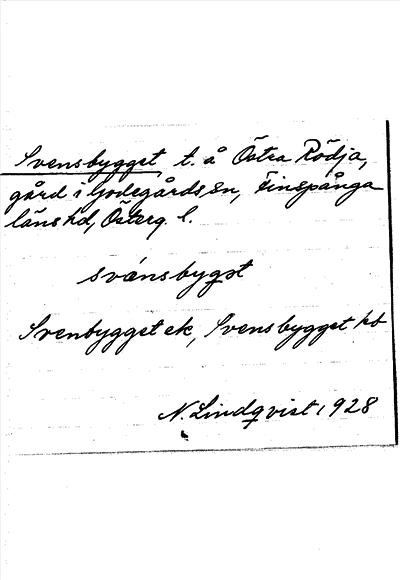 Svensbygget, t. å Östra Rödja,
gård i Godegårds sn, Finspånga
läns hd, Österg. l.
svánsbygət
Svenbygget ek, Svensbygget hd
N. Lindqvist 1928